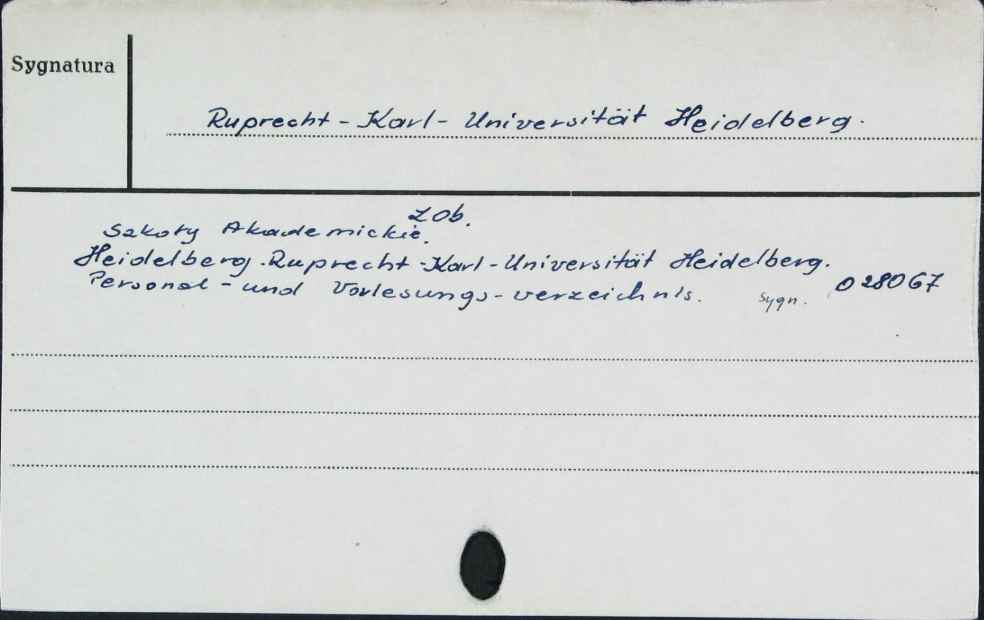 Sygnatura
Ruprecht-Karl-Universität Heidelberg.
zob.
Szkoły Akademickie.
Heidelberg. Ruprecht-Karl-Universität Heidelberg.
Personal-und Vorlesungs-verzeichnis. Sygn. 028067